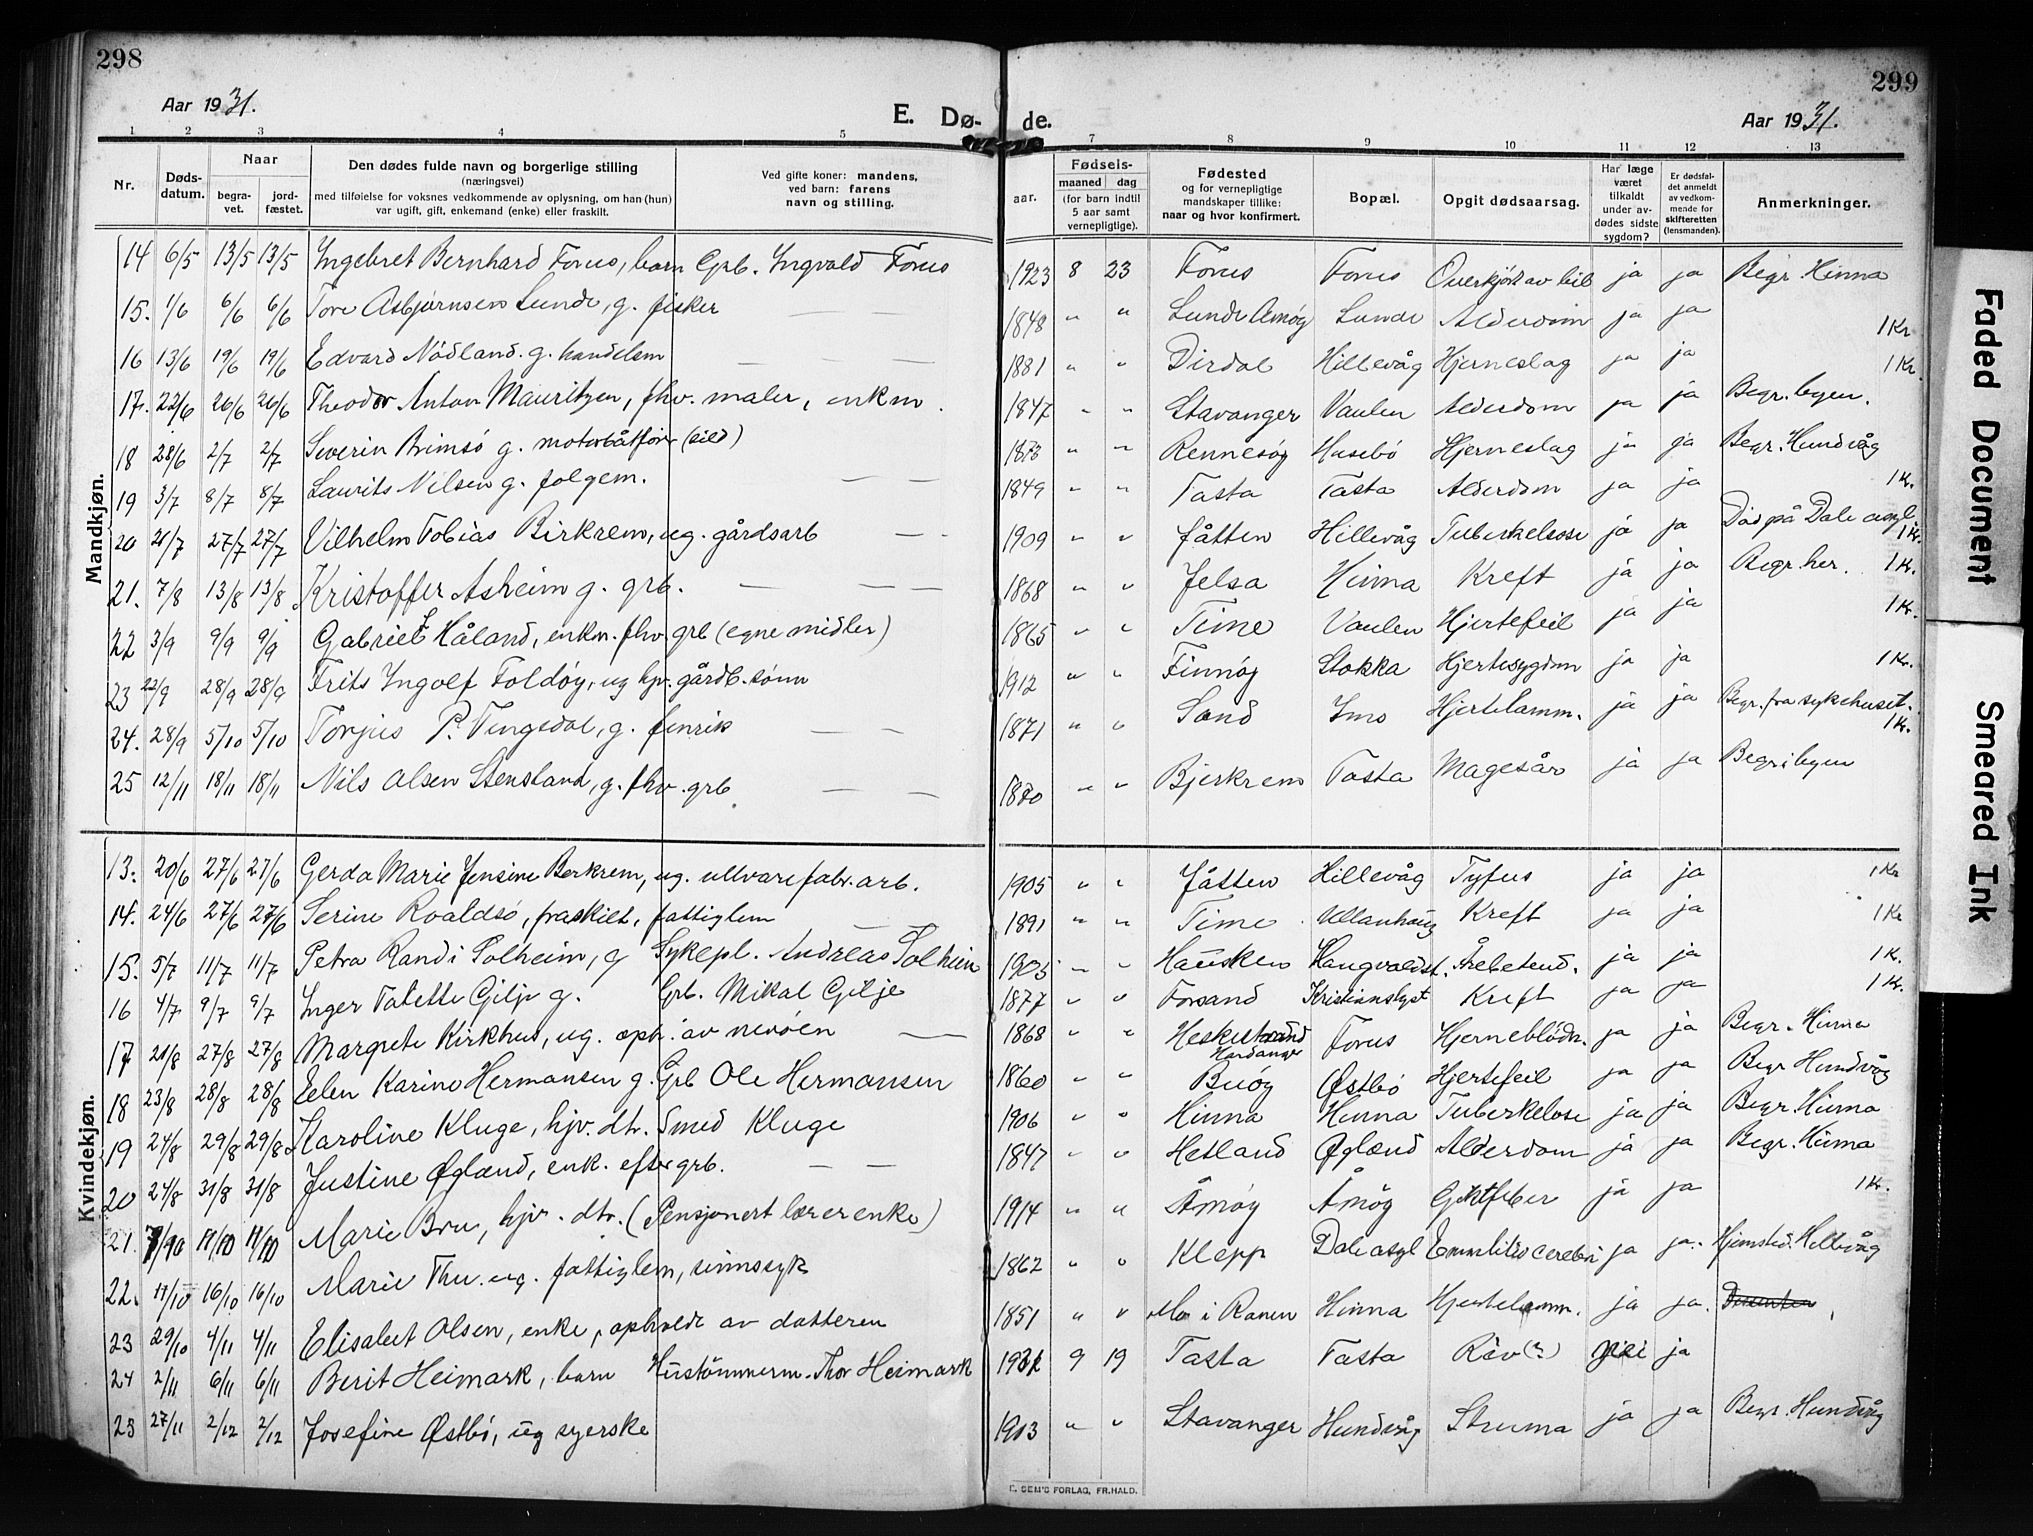 298
299
Aar 1931.
E. Dø- de.
Aar 1931.
1 2 3 4 5 7 8 9 10 11 12 13
Nr.
Døds-datum.
Naar
begra-vet.
jord-fæstet.
Den dødes fulde navn og borgerlige stilling
(næringsvei)
med tilføielse for voksnes vedkommende av oplysning, om han (hun)
var ugift, gift, enkemand (enke) eller fraskilt.
Ved gifte koner: mandens,
ved barn: farens
navn og stilling.
Fødsels-
aar.
maaned dag
(for barn indtil
5 aar samt
vernepligtige).
Fødested
og for vernepligtige
mandskaper tillike:
naar og hvor konfirmert.
Bopæl.
Opgit dødsaarsag.
Har læge
været
tilkaldt
under av-
dødes sidste
sygdom?
Er dødsfal-
det anmeldt
av vedkom-
mende for
skifteretten
(lensmanden).
Anmerkninger.
Mandkjøn.
14 6/5 13/5 13/5 Ingebret Bernhard Forus, barn Grb. Ingvald Forus 1923 8 23 Forus Forus Overkjørt av bil ja ja Begr. Hinna
15. 1/6 6/6 6/6 Tore Asbjørnsen Lunde, g. fisker — — 1848 " " Lunde Amøy Lunde Alderdom ja ja 1 Kr
16 13/6 19/6 19/6 Edvard Nödland. g. handelsm — — — 1881 " " Dirdal Hillevåg Hjerneslag ja ja 1 Kr.
17. 22/6 26/6 26/6 Theodor Anton Mauritzen, fhv. maler, enkm. 1847 " " Stavanger Vaulen Alderdom ja ja Begr. byen.
18 28/6 2/7 2/7 Severin Brimsö g. motorbåtfører (sild) " " Rennesöy Husebö Hjerneslag ja ja Begr. Hundvåg
19 3/7 8/7 8/7 Laurits Nilsen g. folgem. — — 1849 " " Tasta Tasta Alderdom ja ja 1 Kr.
20 21/7 27/7 27/7 Vilhelm Tobias Birkrem, ug. gårdsarb — - 1909 " " Jåtten Hillevåg Tuberkelose ja ja Död på Dale asyl 1 Kr.
21. 7/8 13/8 13/8 Kristoffer Asheim g. grb. — — — 1868 " " Jelsa Hinna Kreft ja ja Begr. her. 1 Kr.
22 3/9 9/9 9/9 Gabriel F Håland, enkm. fhv. grb (egne midler) 1865 " " Time Vaulen Hjertefeil ja ja 1 Kr.
23 22/9 28/9 28/9 Frits Ingolf Foldöy, ug hjv. gårdb. sönn 1912 " " Finnöy Stokka Hjertesygdom ja ja 1 Kr.
24. 28/9 5/10 5/10 Torjus P. Tengsdal, g. fenrik — — 1871 " " Sand Hjertelamm. ja ja Begr. fra sykehuset. 1 Kr.
25 12/11 18/11 18/11 Nils Olsen Stensland, g. fhv. grb — — " " Bjerkrem Tasta Magesår ja ja Begr i byen
Kvindekjøn.
13. 20/6 27/6 27/6 Gerda Marie Jensine Berkrem, ug. ullvarefabr. arb. 1905 " " Jåtten Hillevåg Tyfus ja ja 1 Kr
14. 24/6 27/6 27/6 Serine Roaldsö, fraskilt, fattiglem — — 1891 " " Time Ullanhaug Kreft ja ja 1 Kr
15. 5/7 11/7 11/7 Petra Randi Solheim, g Sykepl. Andreas Solheim 1905 " " Hausken Haugvaldst. Årebetend. ja ja 1 Kr.
16 4/7 9/7 9/7 Inger Talette Gilje g. Grb. Mikal Gilje 1877 " " Forsand Kristianslyst Kreft ja ja 1 Kr.
17 21/8 27/8 27/8 Margrete Kirkhus, ug. oph. av nevöen — 1868 " " Hardanger Forus Hjerneblödn. ja ja Begr. Hinna
18 23/8 28/8 28/8 Elen Karine Hermansen g. Grb Ole Hermansen 1860 " " Buöy Østbö Hjertefeil ja ja Begr Hundvåg
19 24/8 29/8 29/8 Karoline Kluge, hjv. dtr. Smed Kluge 1906 " " Hinna Hinna Tuberkelose ja ja Begr. Hinna
20 24/8 31/8 31/8 Justine Øgland, enk. efter grb. — — 1847 " " Hetland Øgland Alderdom ja ja Begr. Hinna
21. 11/10 11/10 Marie Bru, hjv. dtr. (Pensjonert lærerenke) 1914 " " Åmöy Åmöy Giktfeber ja ja 1 Kr.
22. 11/10 16/10 16/10 Marie Thu. ug. fattiglem, sinnssyk 1862 " " Klepp Dale asyl cerebri ja ja. Hjemsted. Hillevåg
23 29/10 4/11 4/11 Elisabet Olsen, enke, opholdt av datteren 1851 " " Mo i Ranen Hinna Hjertelamm. ja ja.
24 2/11 6/11 6/11 Berit Heimark, barn Hustömmerm. Thor Heimark 9 19 Tasta Tasta (?) ja
23 27/11 2/12 2/12 Josefine Østbö, ug syerske 1903 " " Stavanger Hundvåg Struma ja ja Begr. Hundvåg
E. SEM'S FORLAG, FR.HALD.
Faded Document
Smeared Ink